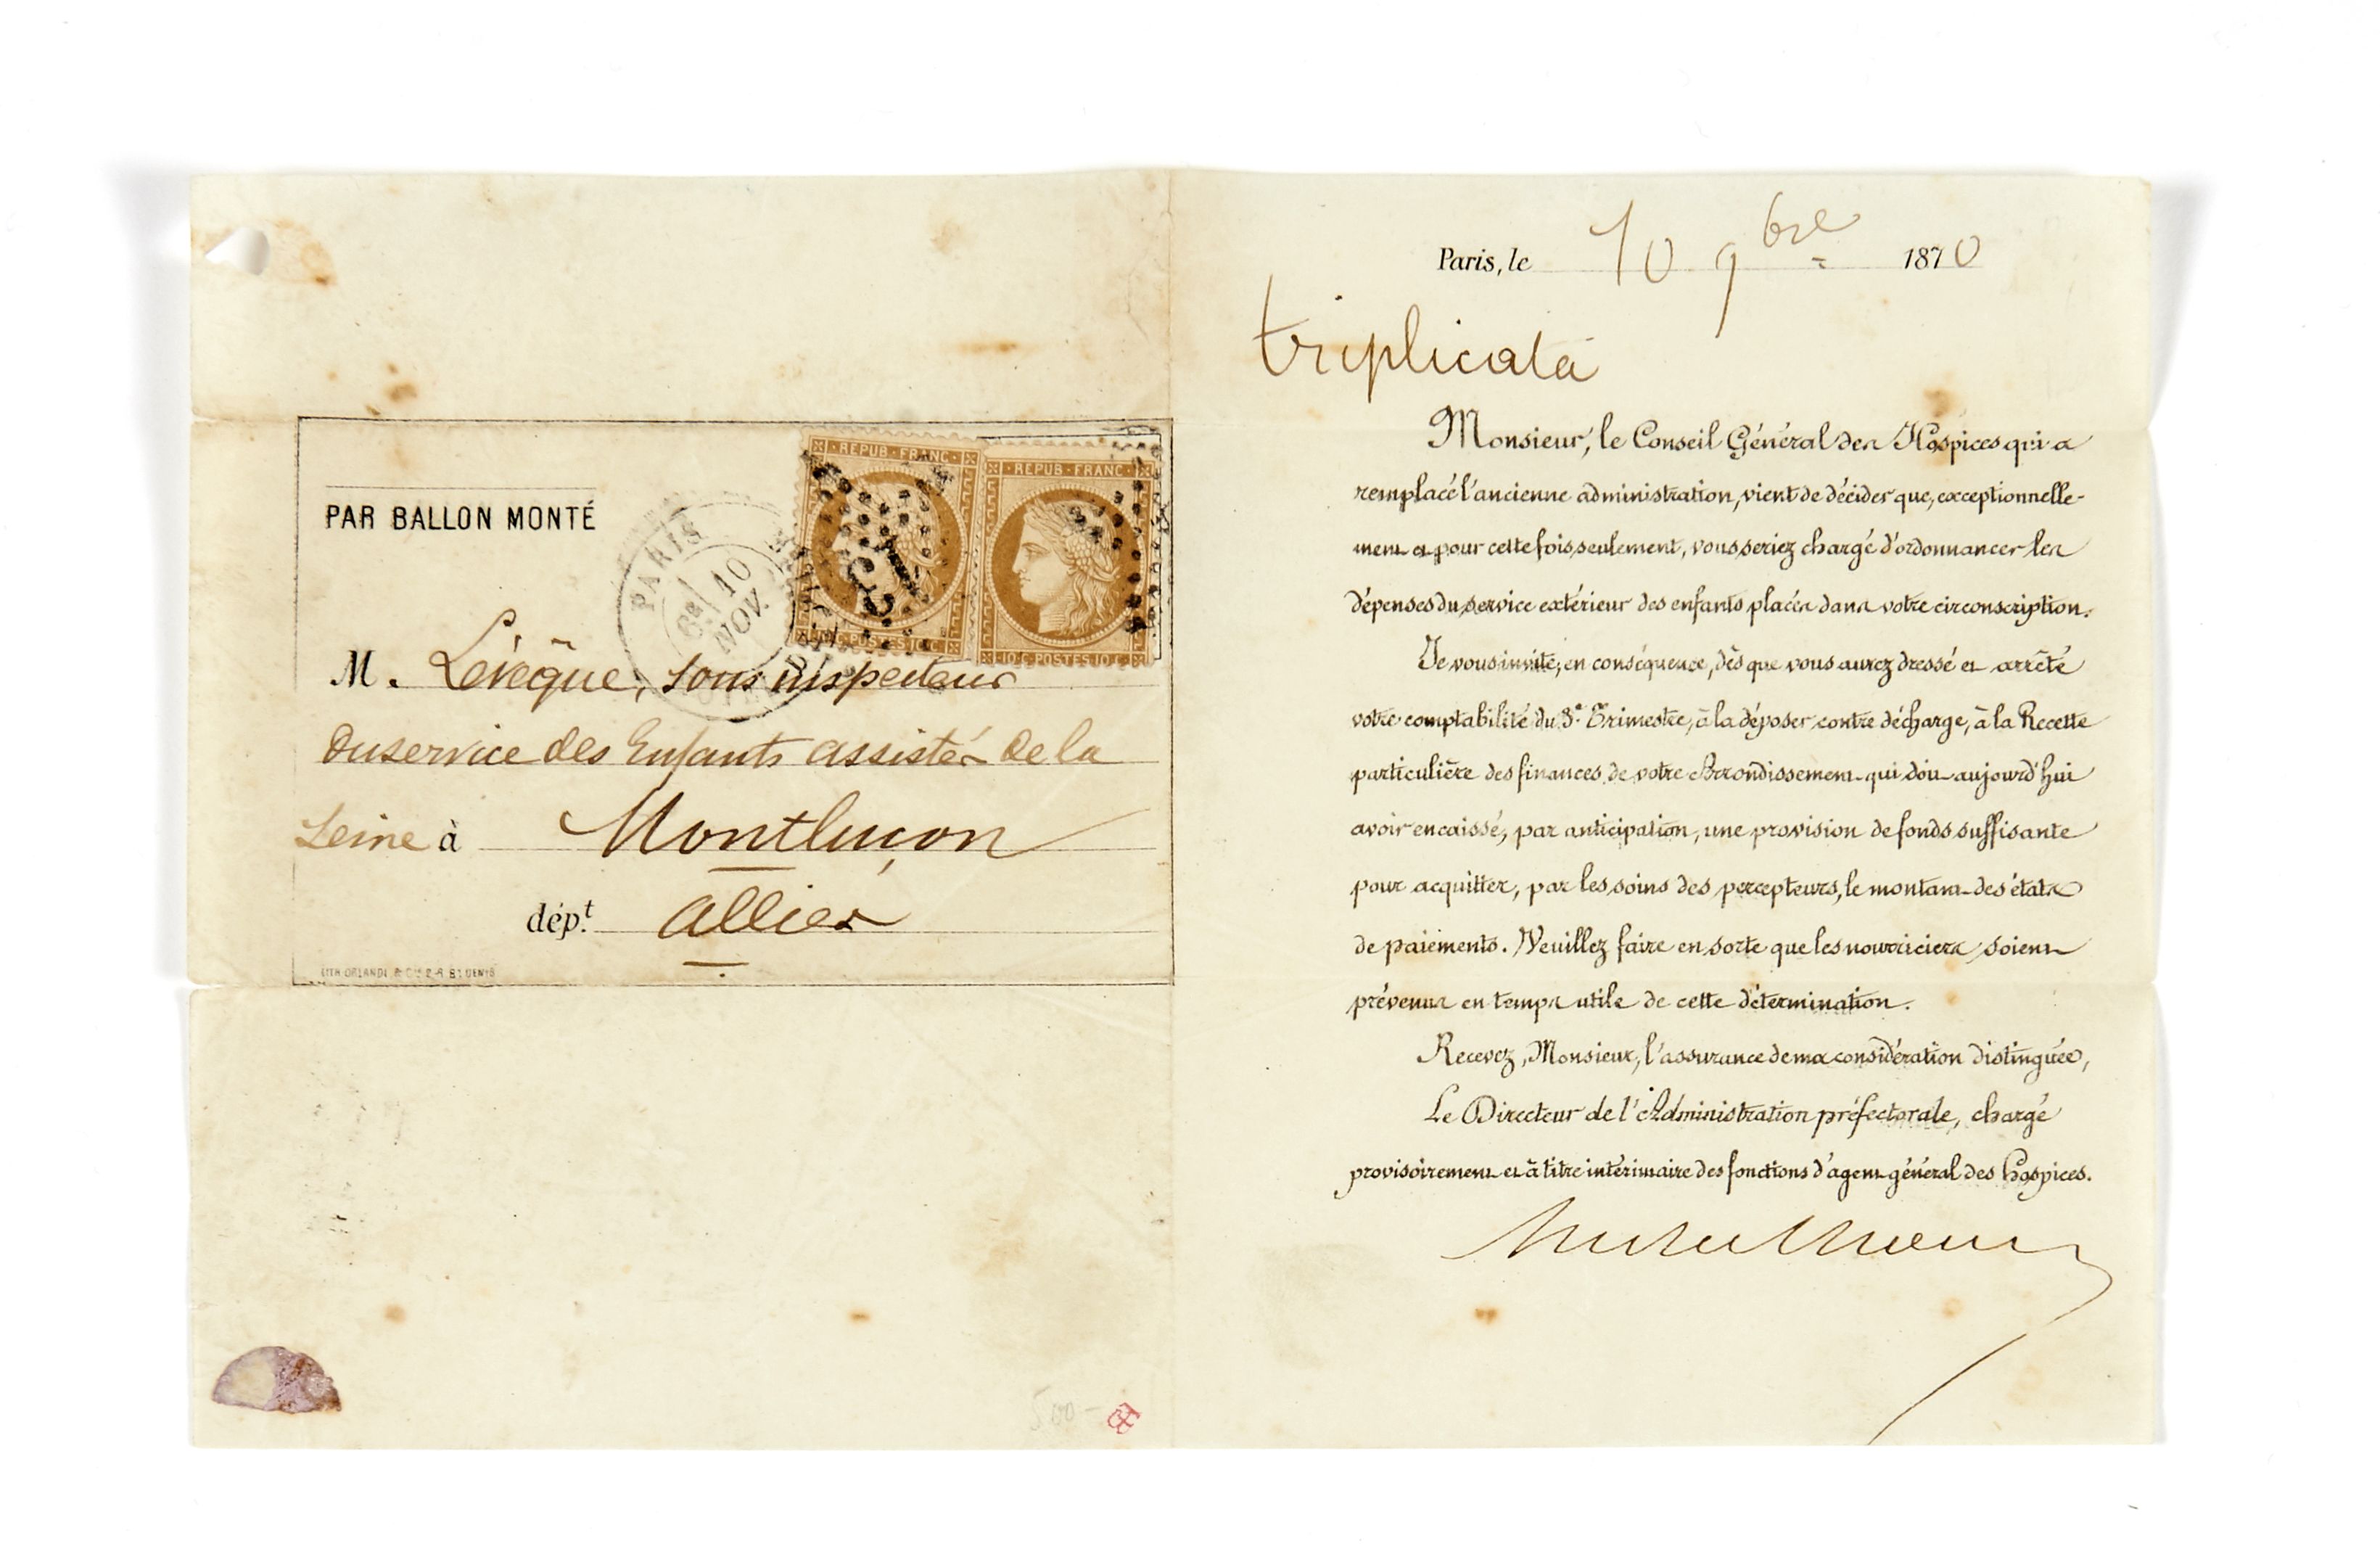 PAR BALLON MONTÉ
REPUB · FRANC
10 C. POSTES 10 C.
REPUB · FRANC
10 C. POSTES 10 C.
PARIS
10
NOV.
M. Levêque, sous inspecteur
du service des Enfants assistés de la
Seine à Montluçon
dépt. allier
LITH. ORLANDI
500 -
Paris, le 10 9bre 1870
triplicata
Monsieur, le Conseil Général des Hospices qui a
remplacé l'ancienne administration, vient de décider que, exceptionnelle-
ment et pour cette fois seulement, vous seriez chargé d'ordonnancer les
dépenses du service extérieur des enfants placés dans votre circonscription.
Je vous invite, en conséquence, dès que vous aurez dressé et arrêté
votre comptabilité du 3e. Trimestre, à la déposer contre décharge, à la Recette
particulière des finances de votre Arrondissement qui doit aujourd'hui
avoir encaissé, par anticipation, une provision de fonds suffisante
pour acquitter, par les soins des percepteurs, le montant des états
de paiements. Veuillez faire en sorte que les nourriciers soient
prévenus en temps utile de cette détermination.
Recevez, Monsieur, l'assurance de ma considération distinguée,
Le Directeur de l'Administration préfectorale, chargé
provisoirement et à titre intérimaire des fonctions d'agent général des hospices.